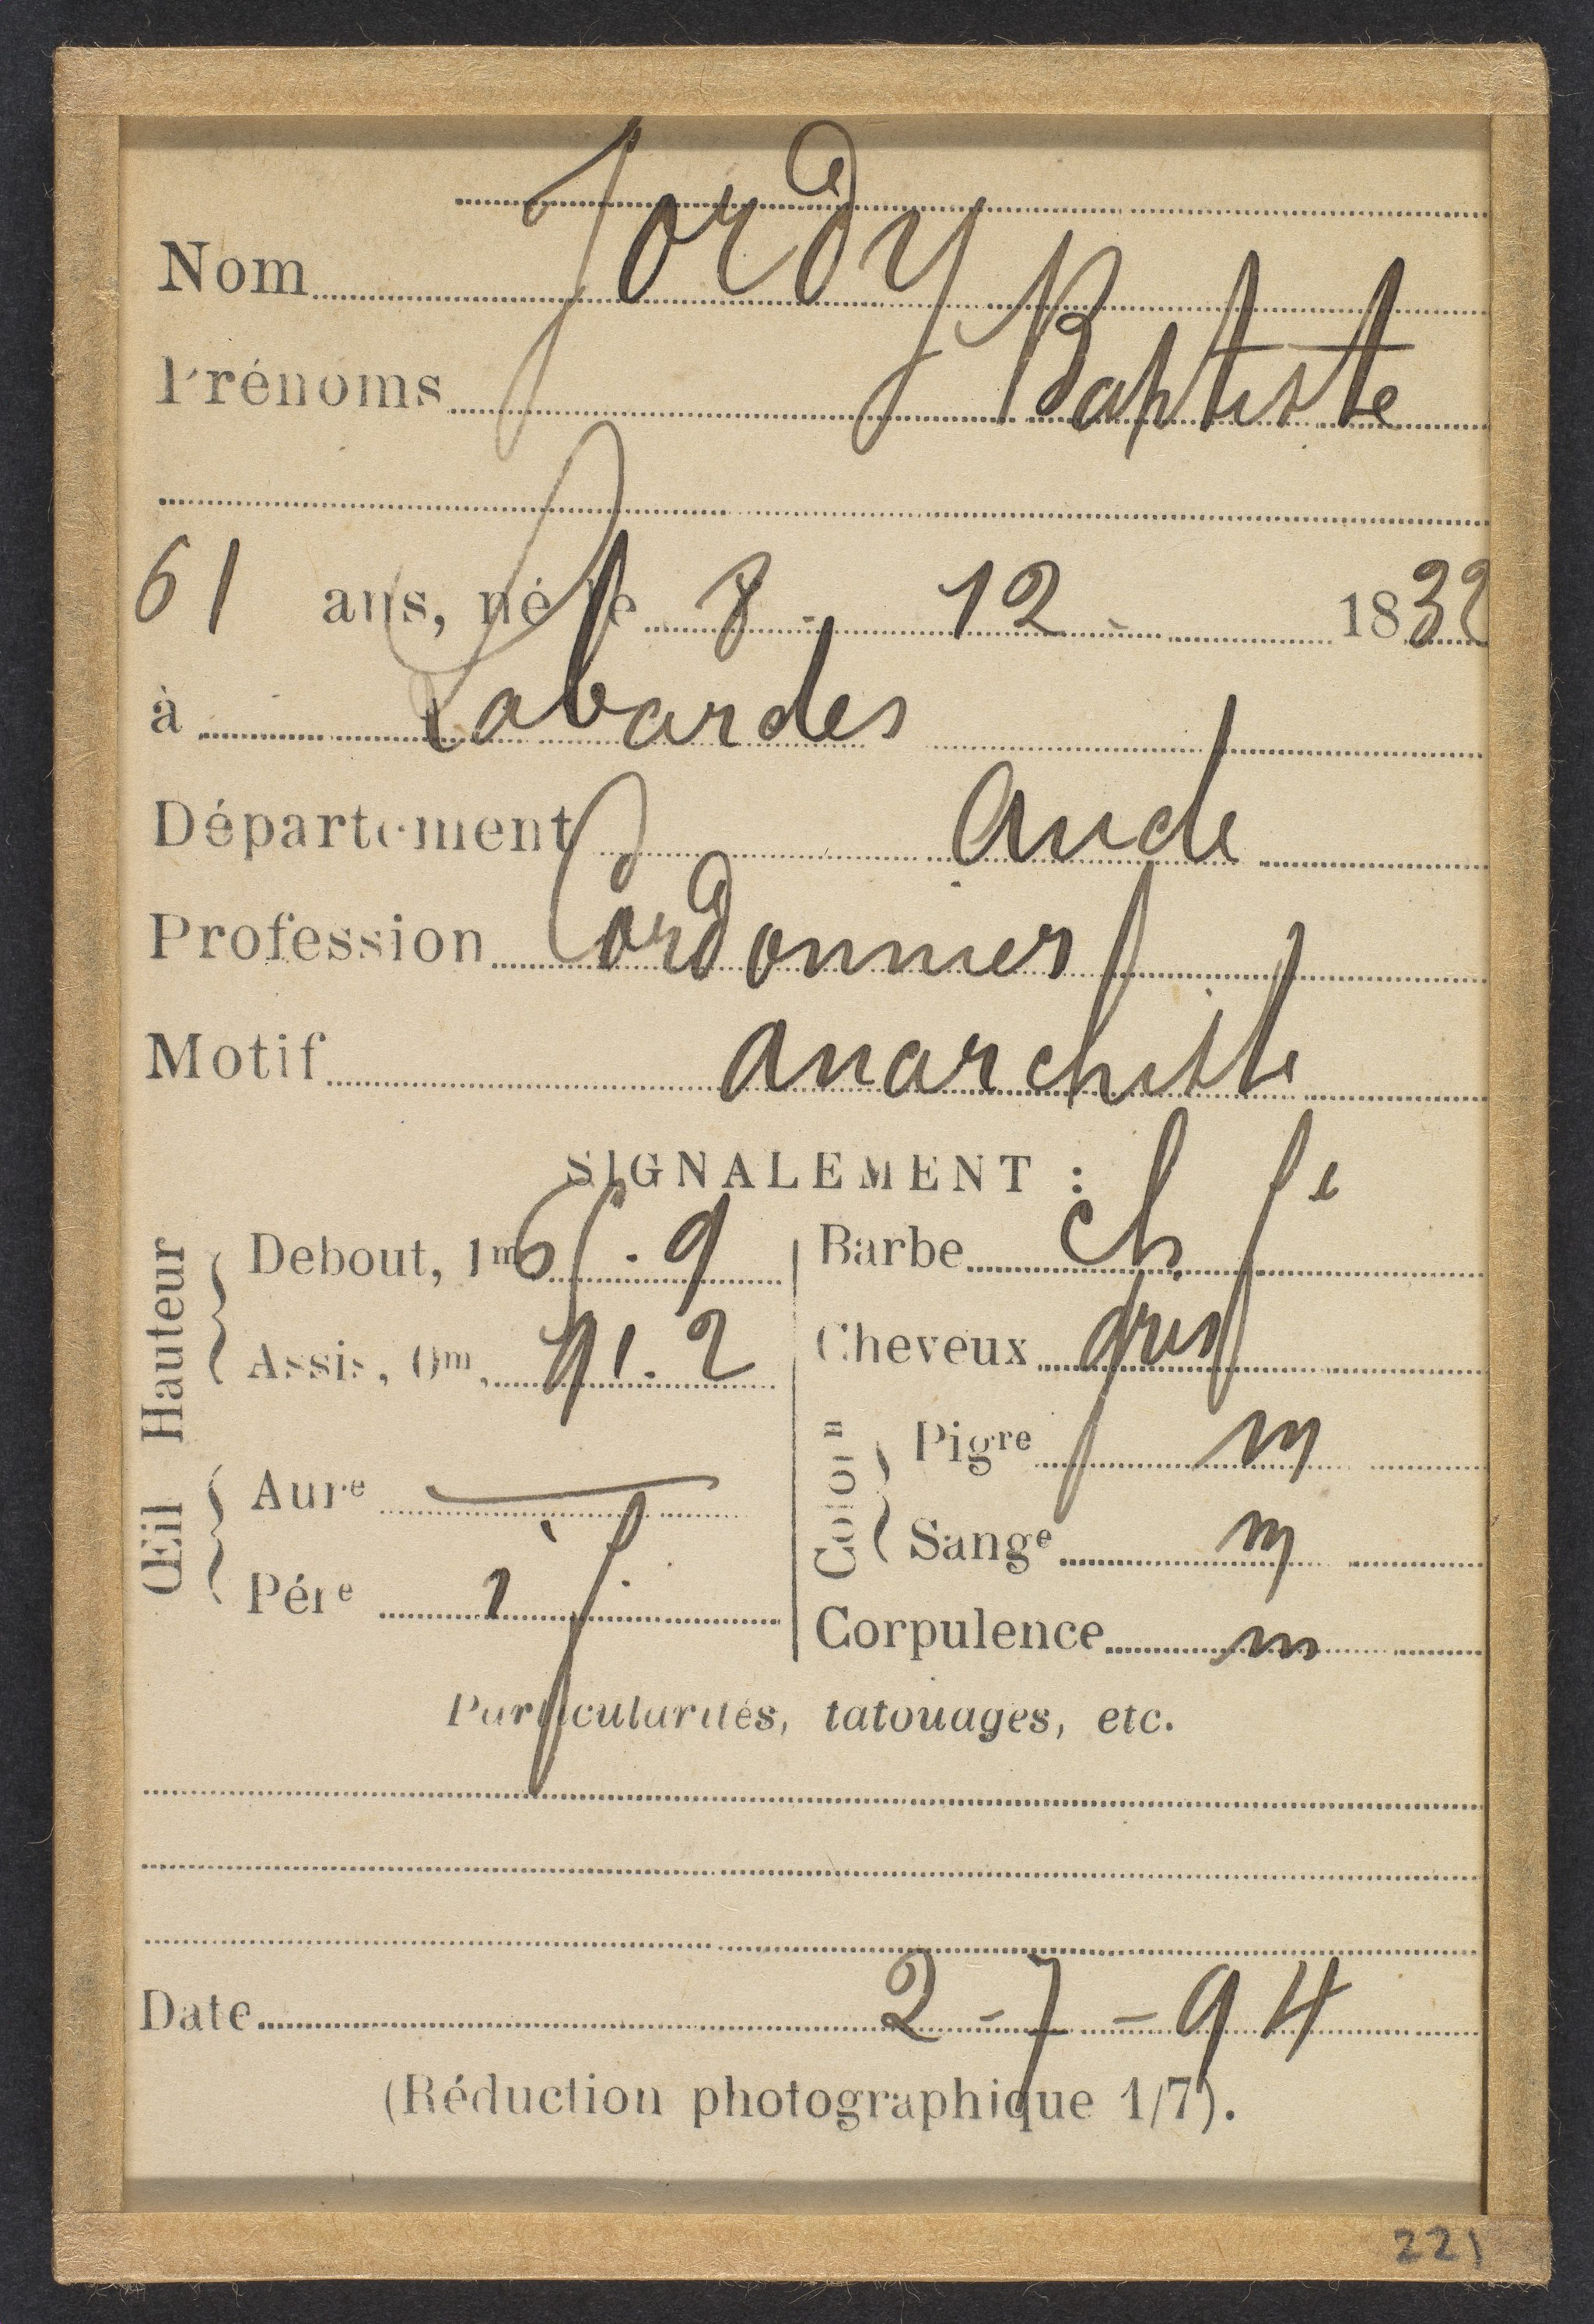 Nom Jordy
Prénoms Baptiste
61 ans, né le 8 - 12 - 1832
à Labardes
Département Aude
Profession Cordonnier
Motif anarchiste
SIGNALEMENT :
Hauteur
Debout, 1m
Assis, 0m, 91.2
Œil
Aure
Pére 1
Barbe ch fe
Cheveux gris
Colorn
Pigre m
Sange m
Corpulence m
Particularités, tatouages, etc.
Date 2-7-94
(Réduction photographique 1/7).
221